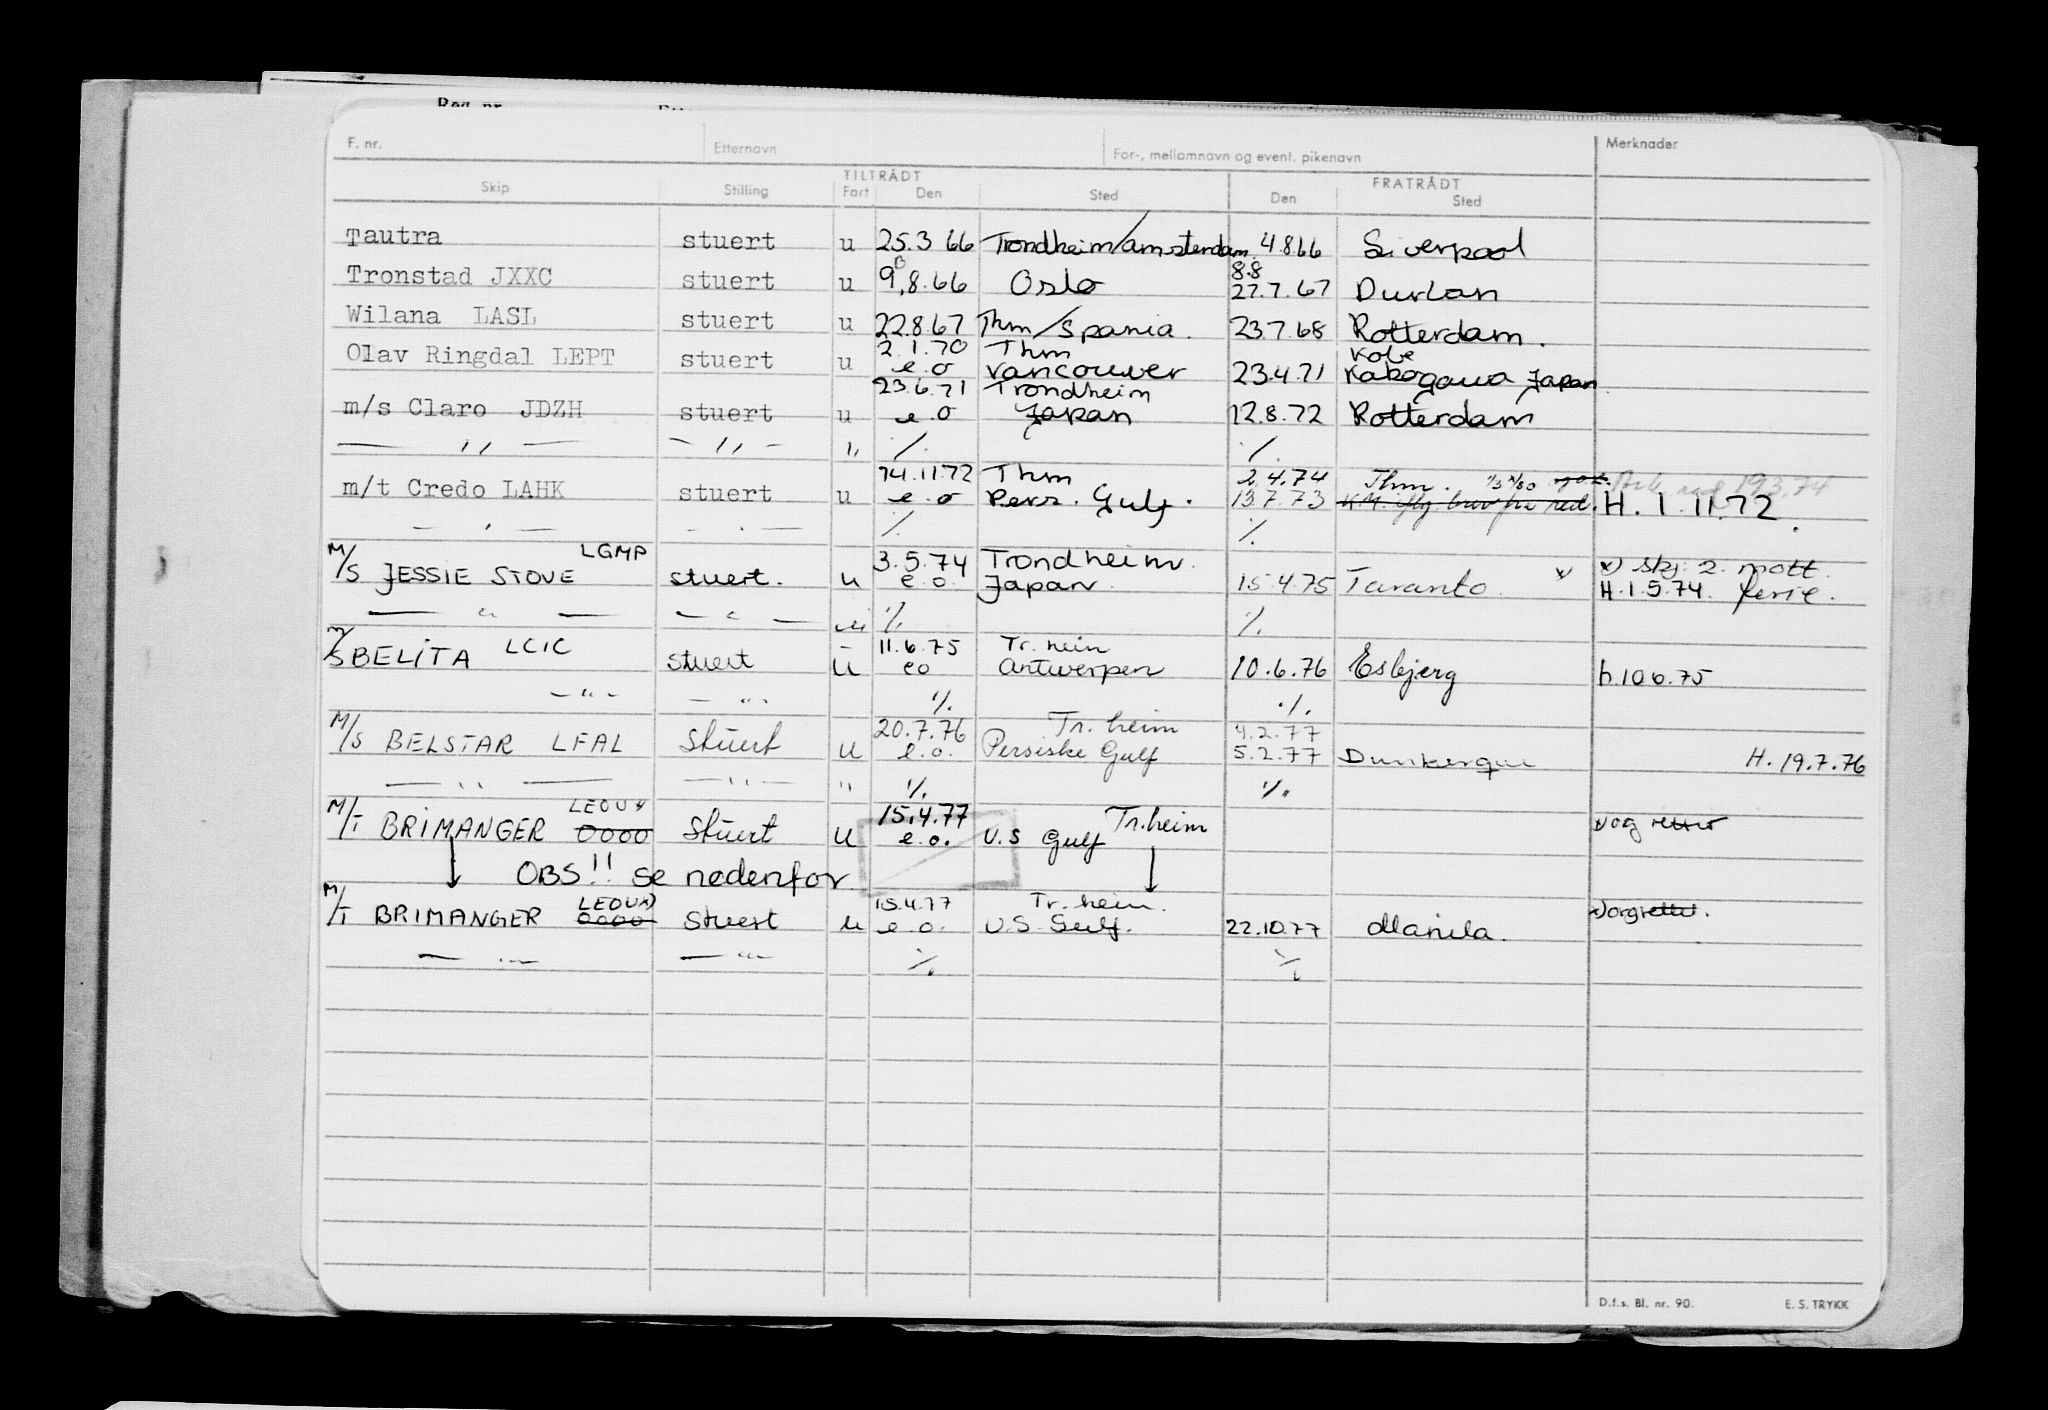 F. nr. Etternavn For-, mellomnavn og event. pikenavn Merknader
TILTRÅDT FRATRÅDT
Skip Stilling Fart Den Sted Den Sted
Tautra stuert u 25.3 66 Trondheim/Amsterdam 4.8.66 Liverpool
8.8
Tronstad JXXC stuert u 9.8.66 Oslo 27.7.67 Durban
Wilana LASL stuert u 22.8.67 Thm/Spania. 23.7.68 Rotterdam.
2.1.70 Thm Kobe
Olav Ringdal LEPT stuert u e.o Vancouver 23.4.71 Kakogawa Japan
23.6.71 Trondheim
m/s Claro JDZH stuert u e.o Japan 12.8.72 Rotterdam
— ,, — — ,, — ,, ./. ./.
14.11.72 Thm 2.4.74 Thm. 19.3.74
m/t Credo LAHK stuert u e.o Pers. Gulf. 13.7.73 H. 1.11.72.
— , — — . — ./. ./.
LGMP 3.5.74 Trondheim. x) skj. 2. mott.
M/S JESSIE STOVE stuert. u e.o. Japan. 15.4.75 Taranto. x) H.1.5.74. ferie.
— " — — " — ./. ./.
LCIC 11.6.75 Tr.heim
M/S BELITA stuert u eo Antwerpen 10.6.76 Esbjerg h.10 6.75
— " — — " — ./. ./.
20.7.76 Tr.heim 4.2.77
M/S BELSTAR LFAL Stuert u e.o. Persiske Gulf 5.2.77 Dunkerque H. 19.7.76
— " — — " — " ./. ./.
LEOU x) 15.4.77 Tr.heim
M/T BRIMANGER OOOO Stuert u e.o. U.S Gulf
OBS!! se nedenfor
LEOU x) 15.4.77 Tr.heim.
M/T BRIMANGER OOOO Stuert u e.o. U.S. Gulf. 22.10.77 Manila.
— " — — " — ./. ./.
D.f.s. Bl. nr. 90. E. S. TRYKK